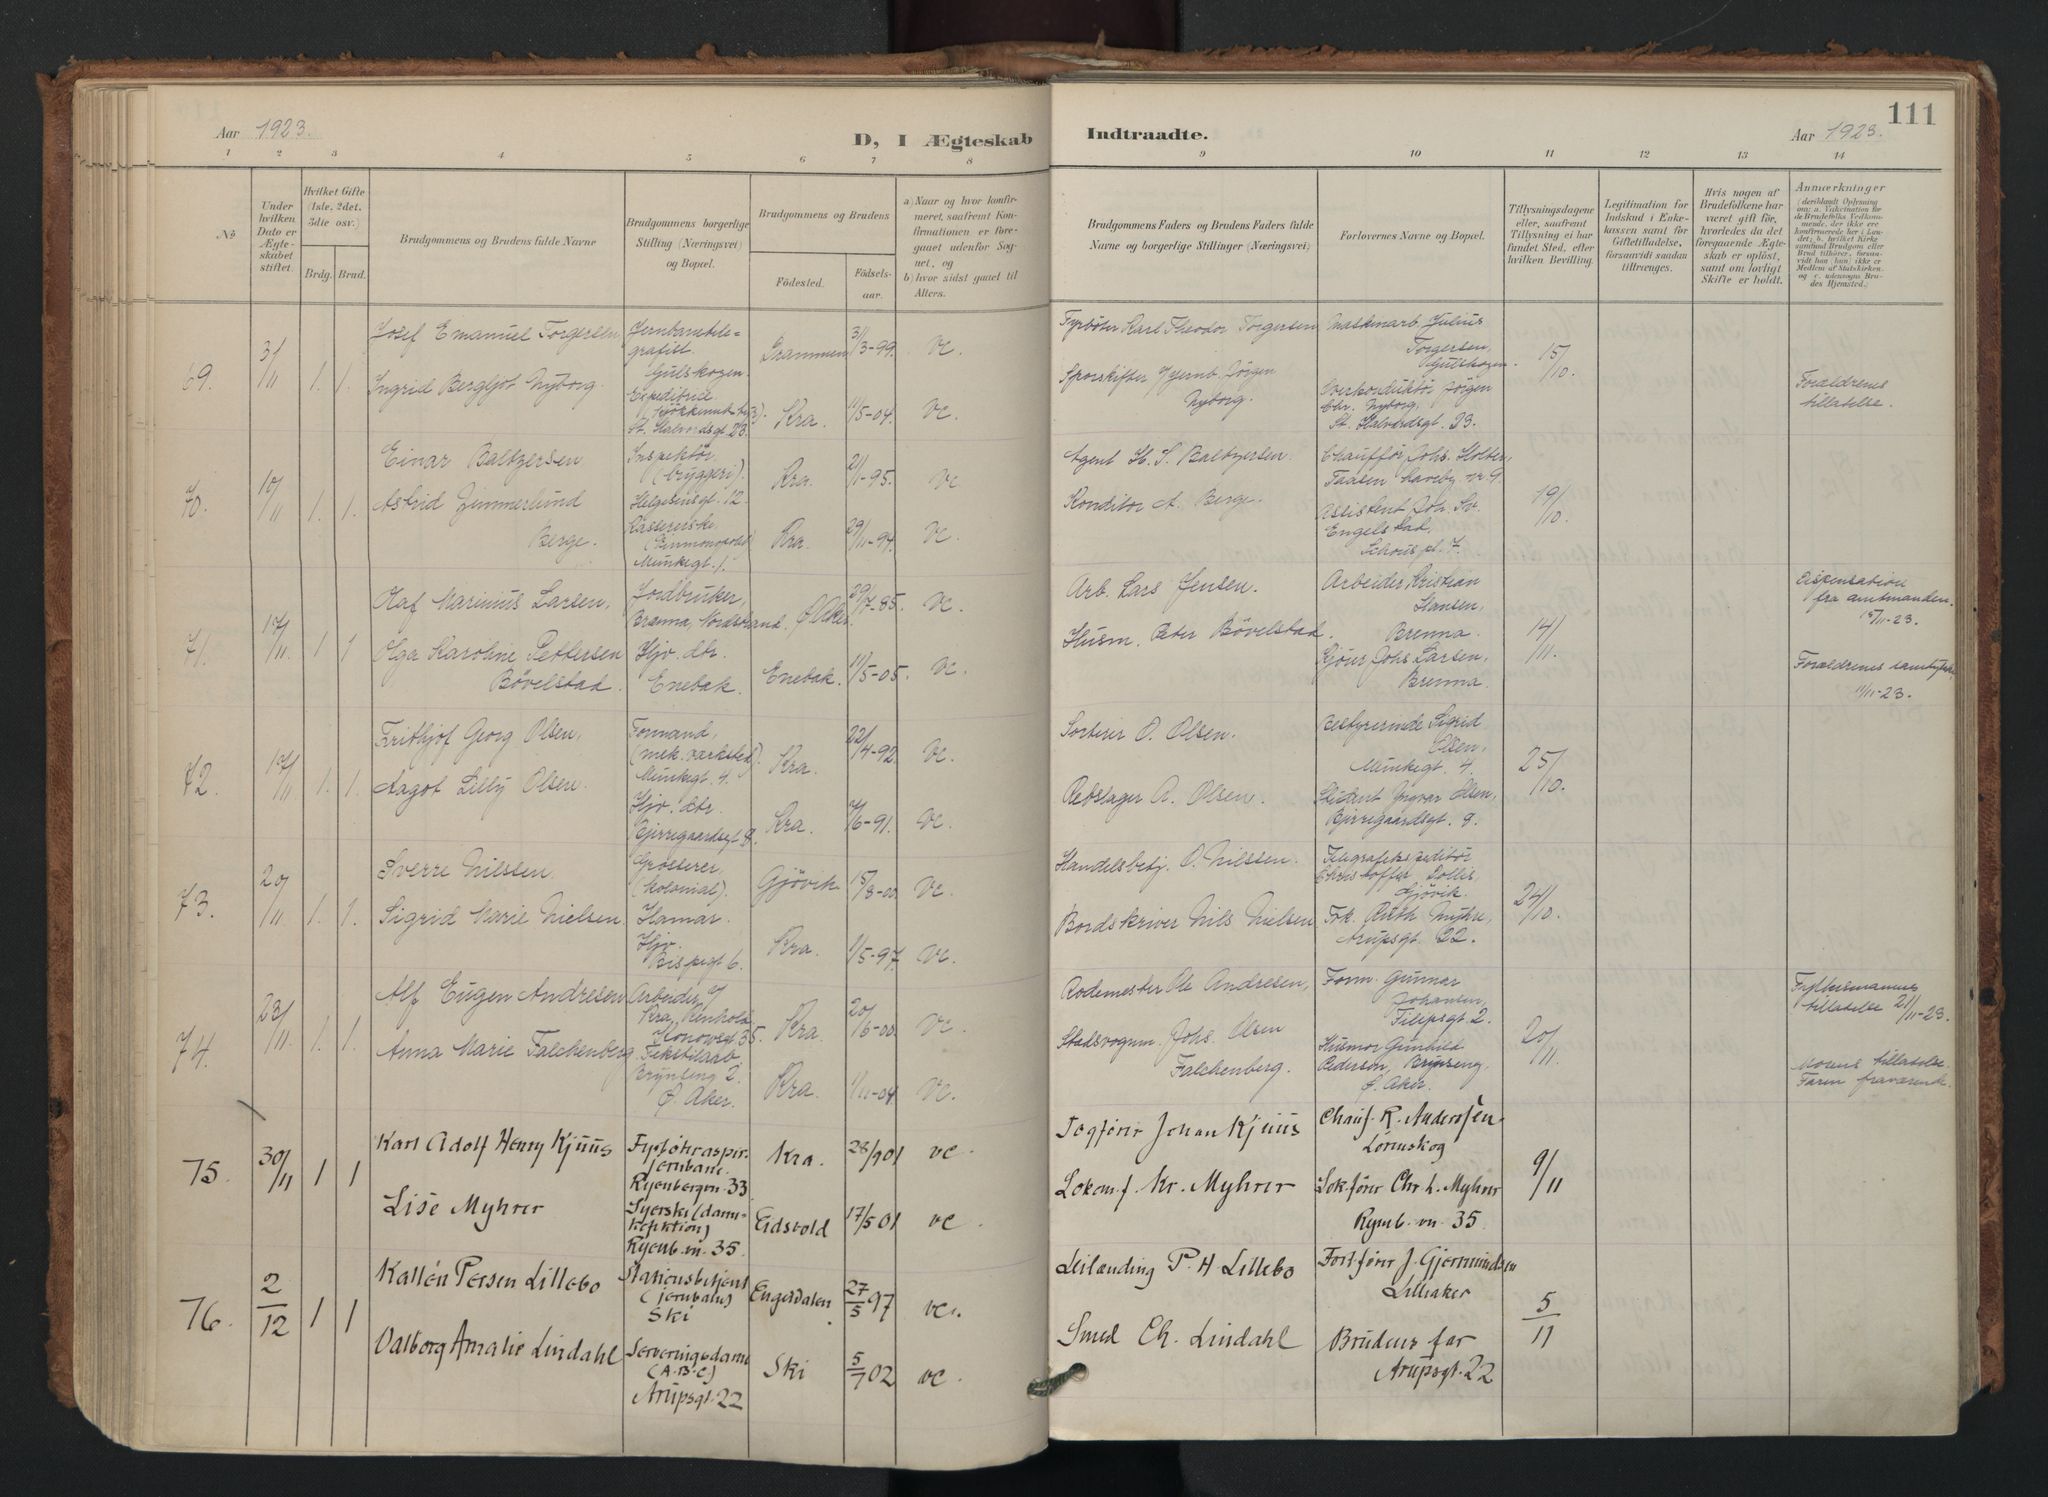 111
Aar 1923.
D, I Ægteskab
Indtraadte.
Aar 1923.
1 2 3 4 5 6 7 8 9 10 11 12 13 14
No
Under hvilken Dato er Ægteskabet stiftet.
Hvilket Gifte (1ste, 2det, 3die osv.)
Brdg. Brud.
Brudgommens og Brudens fulde Navne
Brudgommens borgerlige Stilling (Næringsvei) og Bopæl.
Brudgommens og Brudens
Födested.
Födsels-aar.
a) Naar og hvor konfirmeret, saafremt Konfirmationen er foregaaet udenfor Sognet, og
b) hvor sidst gaaet til Alters.
Brudgommens Faders og Brudens Faders fulde Navne og borgerlige Stillinger (Næringsvei).
Forlovernes Navne og Bopæl.
Tillysningsdagene eller, saafremt Tillysning ei har fundet Sted, efter hvilken Bevilling.
Legitimation for Indskud i Enkekassen samt for Giftetilladelse, forsaavidt saadan tiltrænges.
Hvis nogen af Brudefolkene har været gift för, hvorledes da det foregaaende Ægteskab er oplöst, samt om lovligt Skifte er holdt.
Anmærkninger
69. 3/11 1. 1.
Josef Emanuel Torgersen
Jernbanetelegrafist. Gulskogen.
Drammen 31/3-99. vc.
Fyrböter Karl Theodor Torgersen
Maskinarb. Julius Torgersen, Gulskogen.
15/10.
Ingrid Bergljot Nyborg.
Expeditrice
St. Halvardsgt. 23.
Kra. 11/5-04. vc.
Sporskifter v/Jernb. Jörgen Nyborg.
Overkonduktör Jörgen Chr. Nyborg, St. Halvardsgt. 23.
Forældrenes tillatelse.
70. 10/11 1. 1.
Einar Baltzersen
Inspektör (bryggeri). Helgesensgt. 12.
Kra. 2/1-95. vc.
Agent H. S. Baltzersen.
Chauffør Johs. Holter, Taasen haveby nr. 9.
19/10.
Astrid Zimmerlund Berge.
Kassererske (Vinmonopolet) Munkegt. 1.
Kra. 29/11-94. vc.
Konditor A. Berge.
Assistent Joh. Sv. Engelstad, Schous pl. 7.
71. 17/11 1 1
Olaf Marinius Larsen,
Jordbruker, Brenna, Nordstrand.
Ø. Aker. 29/7-85. vc.
Arb. Lars Jensen.
Arbeider Kristian Hansen, Brenna.
14/11.
Dispensation fra amtmanden. 15/11-23.
Olga Karoline Pettersen Bövelstad.
Hjv. dtr. Enebak.
Enebak. 11/5-05. vc.
Husm. Peter Bövelstad.
Kjörer Johs Larsen, Brenna.
Forældrenes samtykke 11/11-23.
72. 17/11 1. 1.
Frithjof Georg Olsen,
Formand, (mek. værksted). Munkegt. 4.
Kra. 22/4-92. vc.
Sorterer O. Olsen.
Bestyrerinde Sigrid Olsen, Munkegt. 4.
25/10.
Aagot Lilly Olsen.
Hjv. dtr. Bjerregaardsgt. 9.
Kra. 7/6-91. vc.
Rebslager A. Olsen.
Student Yngvar Olsen, Bjerregaardsgt. 9.
73. 20/11 1. 1.
Sverre Nilssen.
Grosserer, (kolonial). Hamar.
Gjövik 15/8-00. vc.
Handelsbetj. O. Nilssen.
Telegrafekspeditör Christoffer Dollis, Gjövik.
24/10.
Sigrid Marie Nielsen
Hjv. Bispegt 6.
Kra. 1/5-97. vc.
Bordskriver Nils Nielsen
Frk. Ruth Myhre, Arupsgt. 22.
74. 23/11 1. 1.
Alf Eugen Andresen
Arbeider v/ Kra. Renhold Konowsgt 35.
Kra. 20/6-00. vc.
Rodemester Ole Andresen,
Form. Gunnar Johansen, Filipsgt. 2.
20/11.
Fylkesmannens tillatelse 21/11-23.
Anna Marie Falchenberg.
Tekstilarb Brynseng 2. Ø. Aker.
Kra. 1/11-04 vc.
Stadsvognm. Johs. Olsen Falchenberg.
Husmor Gunhild Pederson, Brynseng, Ø. Aker.
Morens tillatelse. Faren fraværende
75. 30/11 1 1
Karl Adolf Henry Kjuus
Fyrböteraspir. jernbane. Ryenbergvn. 33
Kra. 28/9 01 vc.
Togförer Johan Kjuus
Chauf. R. Anderssen Lörenskog
9/11
Lise Myhrer
Syerske (damekonfektion) Ryenb. vn. 35.
Eidsvold 17/5 01 vc.
Lokomf. Kr. Myhrer
Lokförer Chr. L. Myhrer Ryenb. vn. 35
76. 2/12 1 1
Kallén Persen Lillebo
Stationsbetjent (jernbane) Ski
Engerdalen 27/5 97 vc.
Leilænding P. H Lillebo
Fortförer J. Gjermundsen Lilleaker
5/11
Valborg Amalie Lindahl
Serveringsdame (A.B.C) Arupsgt. 22
Ski 5/7 02 vc.
Smed Ch. Lindahl
Brudens far Arupsgt. 22